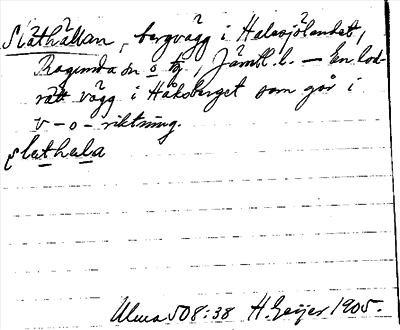 Släthällan, bergvägg i Halasjölandet,
Ragunda sn o tg, Jämtl. l. — En lod-
rätt vägg i Håksberget som går i
v-o-riktning.
slathala
Ulma 508:38 H. Geijer 1905.